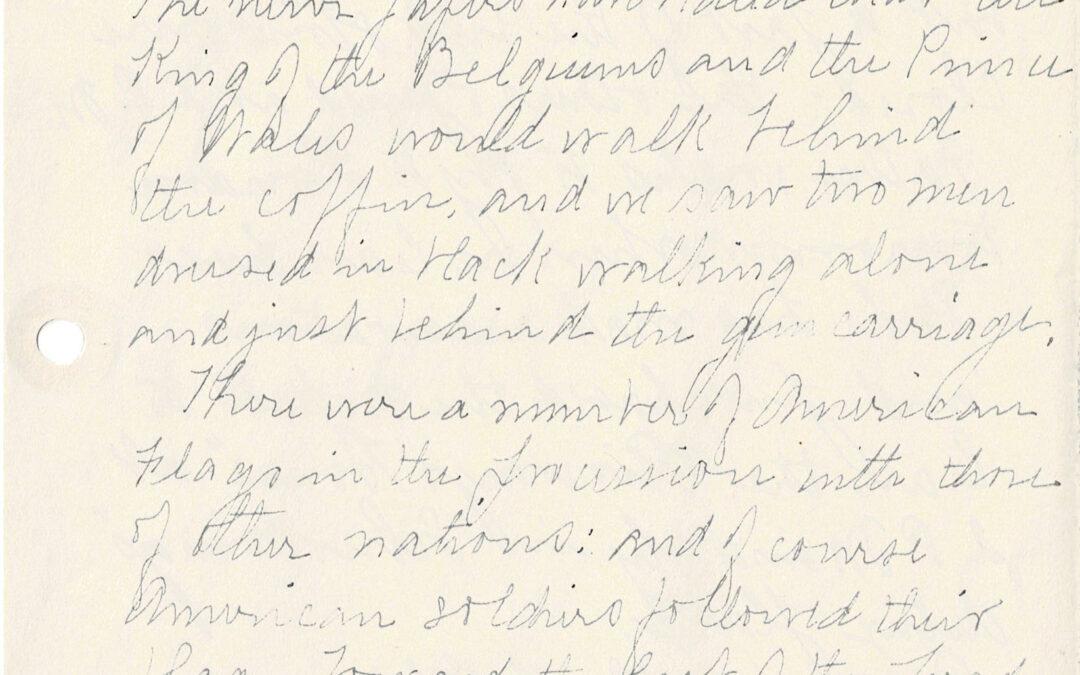 The news papers have stated that the
King of the Belgiums and the Prince
of Wales would walk behind
the coffin, and we saw two men
dressed in black walking alone
and just behind the gun carriage.
There were a number of American
Flags in the procession with those
of other nations: and of course
American soldiers followed their
flag. Toward the last of the